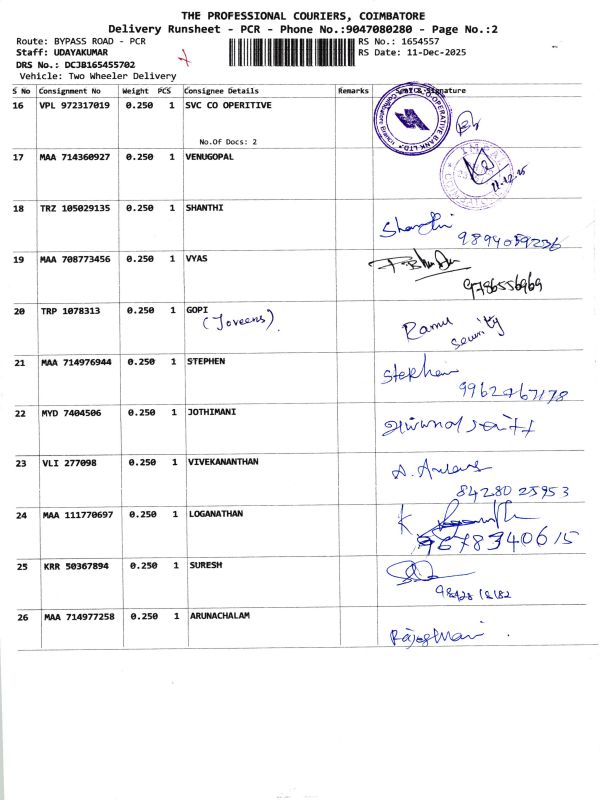 THE PROFESSIONAL COURIERS, COIMBATORE
Delivery Runsheet - PCR - Phone No.:9047080280 - Page No.:2
Route: BYPASS ROAD - PCR RS No.: 1654557
Staff: UDAYAKUMAR RS Date: 11-Dec-2025
DRS No.: DCJB165455702
Vehicle: Two Wheeler Delivery
S No Consignment No Weight PCS Consignee Details Remarks Signature
16 VPL 972317019 0.250 1 SVC CO OPERITIVE
No.Of Docs: 2
17 MAA 714360927 0.250 1 VENUGOPAL
11.12.25
18 TRZ 105029135 0.250 1 SHANTHI
Shanthi
9894059236
19 MAA 708773456 0.250 1 VYAS
9786556969
20 TRP 1078313 0.250 1 GOPI
(Joveens) Ramu
Security
21 MAA 714976944 0.250 1 STEPHEN
Stephen
9962467178
22 MYD 7404506 0.250 1 JOTHIMANI
23 VLI 277098 0.250 1 VIVEKANANTHAN
84280 25953
24 MAA 111770697 0.250 1 LOGANATHAN
K
9678340615
25 KRR 50367894 0.250 1 SURESH
26 MAA 714977258 0.250 1 ARUNACHALAM